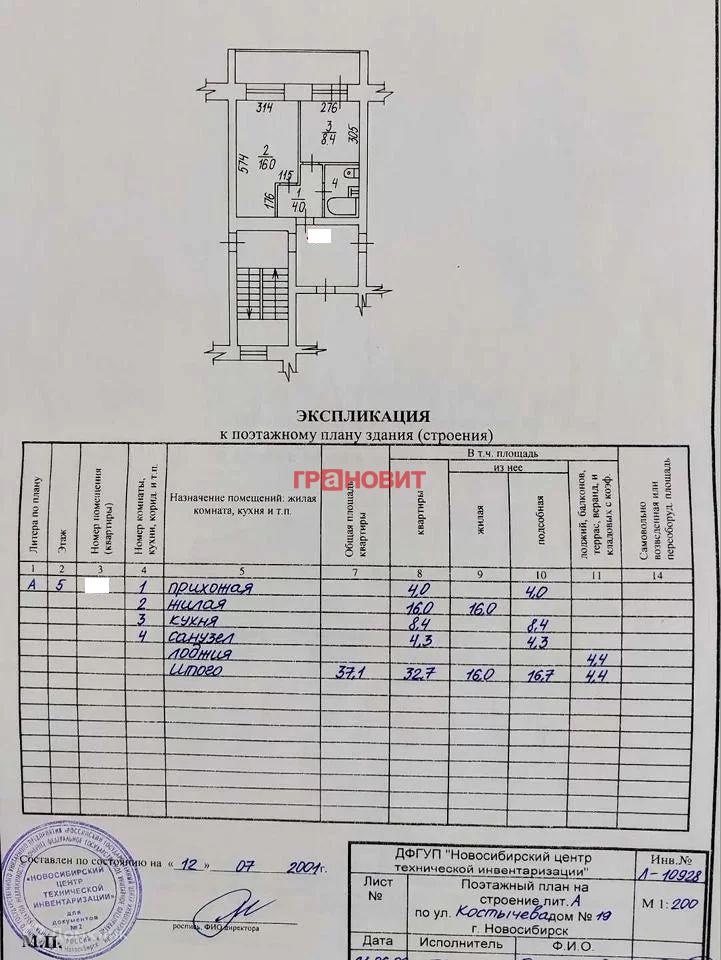 314
276
3
8.4
305
2
16.0
574
115
4
176
1
4.0
ЭКСПЛИКАЦИЯ
к поэтажному плану здания (строения)
ГРАНОВИТ
Литера по плану
Этаж
Номер помещения (квартиры)
Номер комнаты, кухни, корид. и т.п.
Назначение помещений: жилая
комната, кухня и т.п.
Общая площадь квартиры
В т.ч. площадь
из нее
квартиры
жилая
подсобная
лоджий, балконов, террас, веранд, и кладовых с коэф.
Самовольно возведенная или переоборуд. площадь
1 2 3 4 5 7 8 9 10 11 14
А 5 1 прихожая 4,0 4,0
2 жилая 16,0 16,0
3 кухня 8,4 8,4
4 санузел 4,3 4,3
лоджия 4,4
Итого 37,1 32,7 16,0 16,7 4,4
Составлен по состоянию на «12» 07 2001г.
роспись, ФИО директора
М.П.
«НОВОСИБИРСКИЙ
ЦЕНТР
ТЕХНИЧЕСКОЙ
ИНВЕНТАРИЗАЦИИ»
для
документов
№2
ДФГУП "Новосибирский центр
технической инвентаризации"
Инв.№
Л-10928
Лист
№
Поэтажный план на
строение лит. А
по ул. Костычева дом № 19
г. Новосибирск
М 1:200
Дата Исполнитель Ф.И.О.